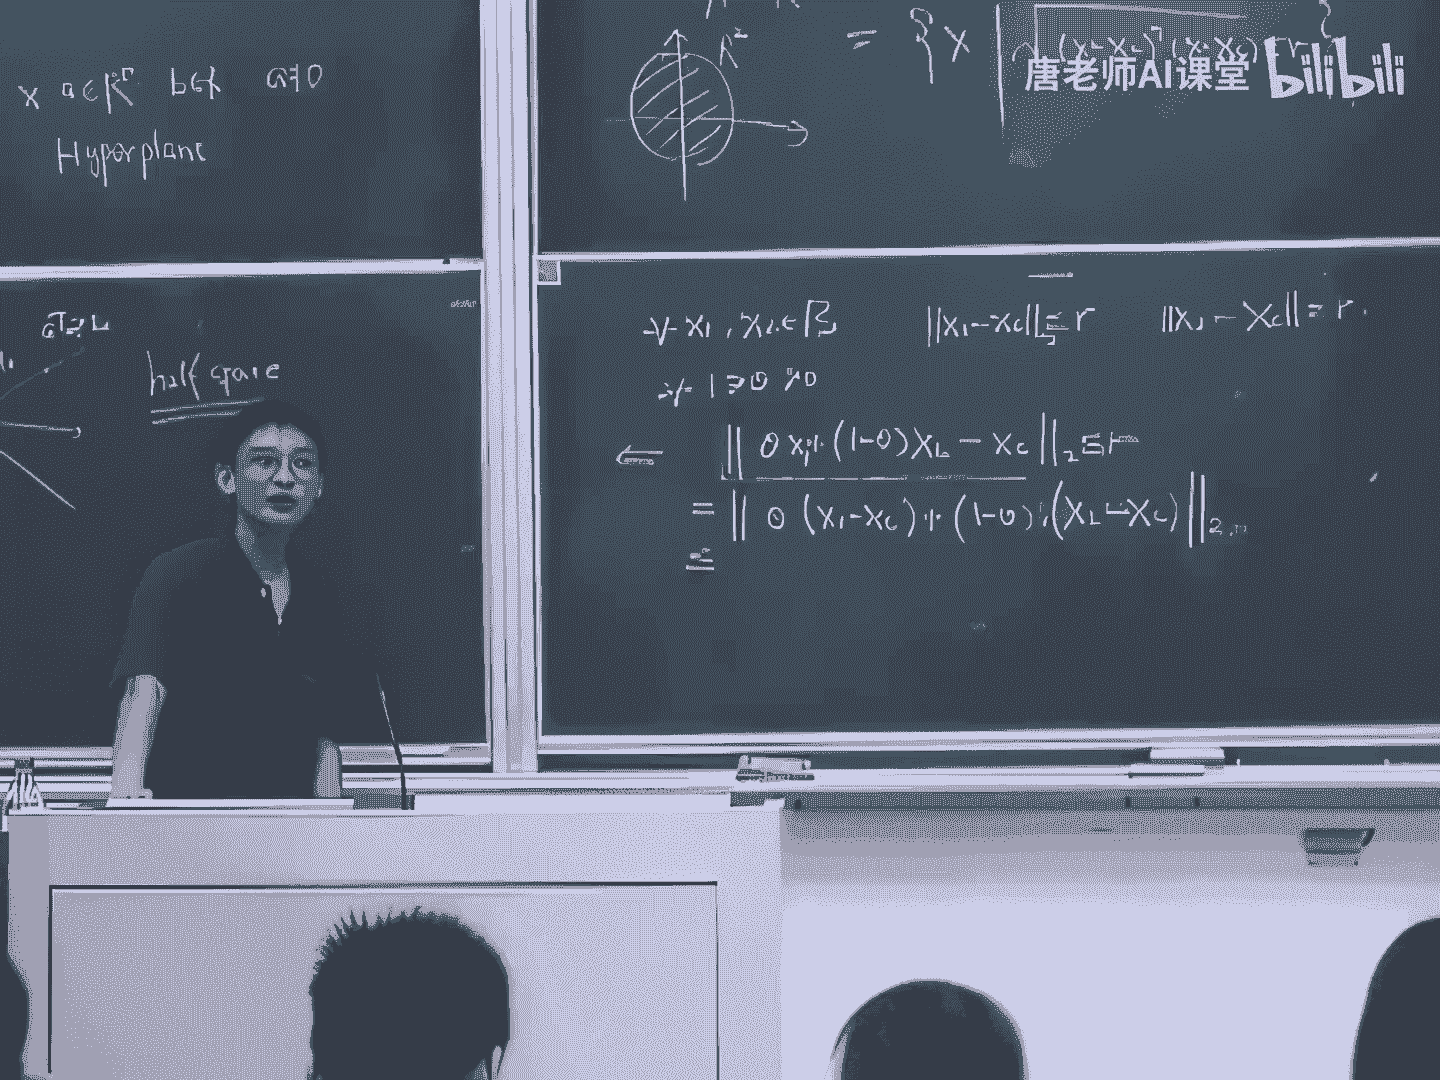 x a∈Rⁿ b∈R a≠0
Hyperplane
half space
R²
= {x |
唐老师AI课堂 bilibili
∀ x₁, x₂ ∈ B ||x₁-xc||₂≤r ||x₂-xc||≤r.
∀ 1≥θ≥0
⇐ ||θx₁+(1-θ)x₂-xc||₂≤r
= ||θ(x₁-xc)+(1-θ)(x₂-xc)||₂
≤